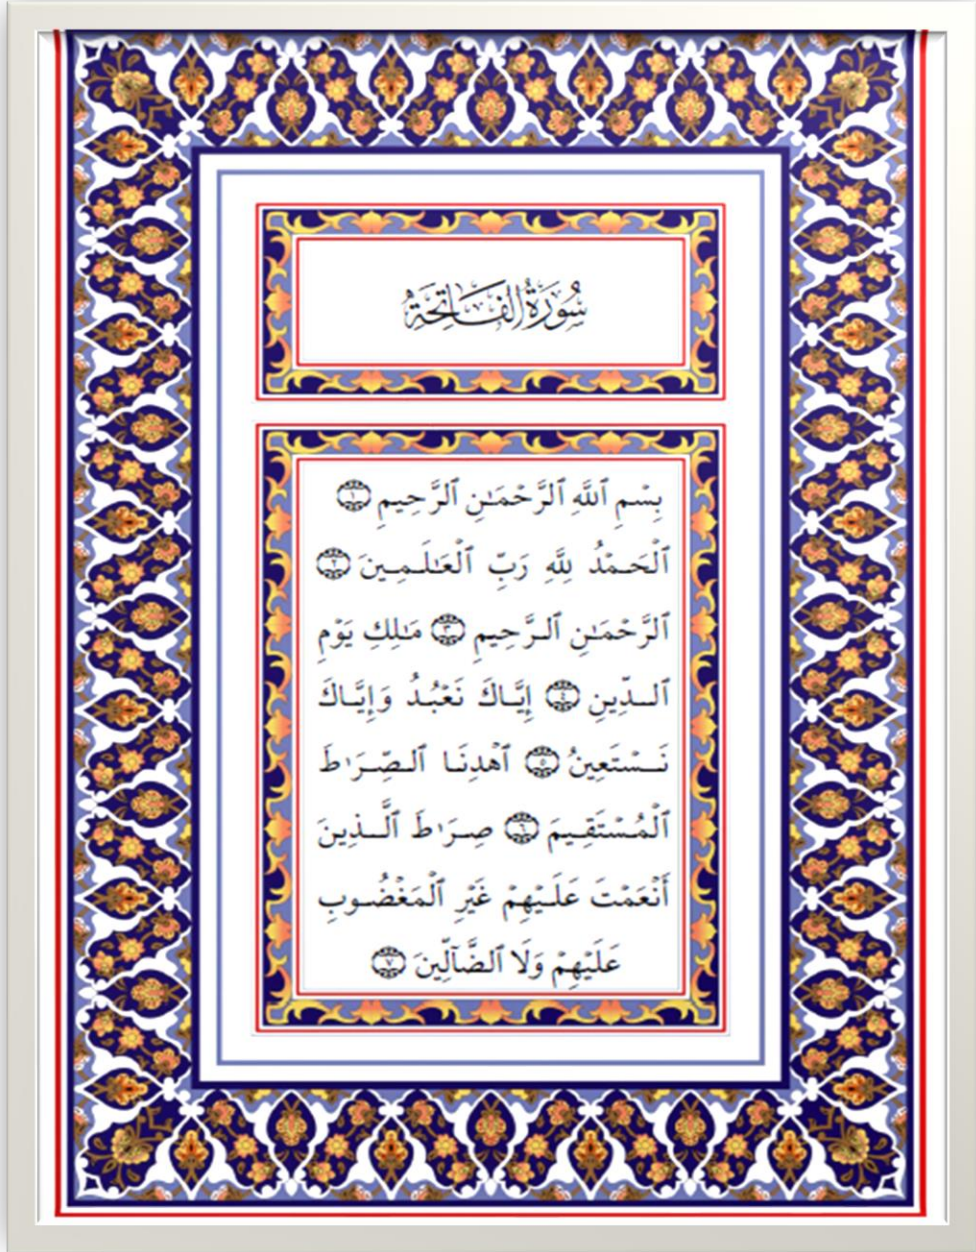 سُورَةُ الفَاتِحَةِ
بِسْمِ ٱللَّهِ ٱلرَّحْمَـٰنِ ٱلرَّحِيمِ ۝١
ٱلْحَمْدُ لِلَّهِ رَبِّ ٱلْعَـٰلَمِينَ ۝٢
ٱلرَّحْمَـٰنِ ٱلرَّحِيمِ ۝٣ مَـٰلِكِ يَوْمِ
ٱلدِّينِ ۝٤ إِيَّاكَ نَعْبُدُ وَإِيَّاكَ
نَسْتَعِينُ ۝٥ ٱهْدِنَا ٱلصِّرَٰطَ
ٱلْمُسْتَقِيمَ ۝٦ صِرَٰطَ ٱلَّذِينَ
أَنْعَمْتَ عَلَيْهِمْ غَيْرِ ٱلْمَغْضُوبِ
عَلَيْهِمْ وَلَا ٱلضَّآلِّينَ ۝٧